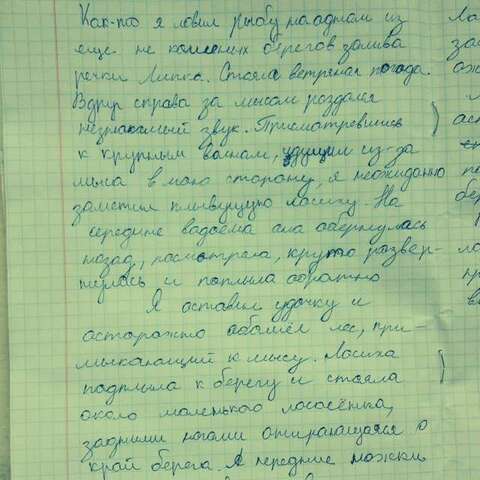 Как-то я ловил рыбу на одном из Ло
еще не кошеных берегов залива за
речки Липка. Стояла ветреная погода. ож
Вдруг справа за мысом раздался
незнакомый звук. Присмотревшись
к крупным волнам, идущим из-за
мыса в мою сторону, я неожиданно
заметил плывущую лосиху. На
середине водоёма она обернулась
назад, посмотрела, круто развер-
нулась и поплыла обратно
Я оставил удочку и
осторожно обошёл лес, при-
мыкающий к мысу. Лосиха
подплыла к берегу и стояла
около маленького лосёнка,
задними ногами опирающегося о
край берега. А передние ножки